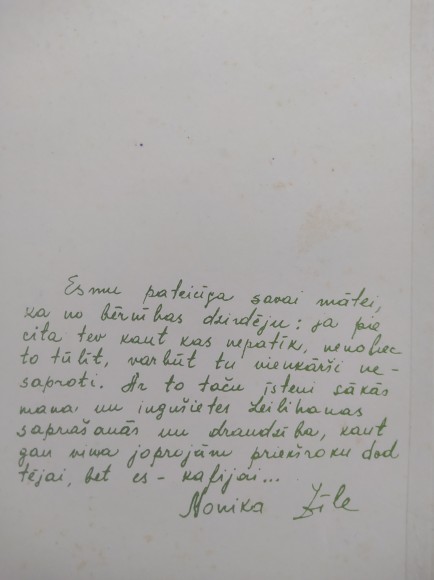 Esmu pateicīga savai mātei,
ka no bērnības dzirdēju: ja pie
cita tev kaut kas nepatīk, nenobļec
to tūlīt, varbūt tu vienkārši ne-
saproti. Ar to taču īsteni sākās
mana un ingušietes Leilihanas
saprašanās un draudzība, kaut
gan viņa joprojām priekšroku dod
tējai, bet es - kafijai...
Monika Zīle